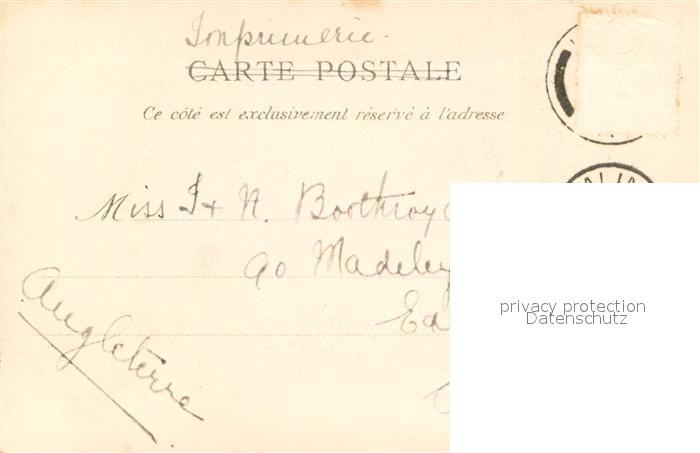 Imprimerie.
CARTE POSTALE
Ce côté est exclusivement réservé à l'adresse
Miss I + N. Boothroyd
90 Madeley
Ea
Angleterre
privacy protection
Datenschutz